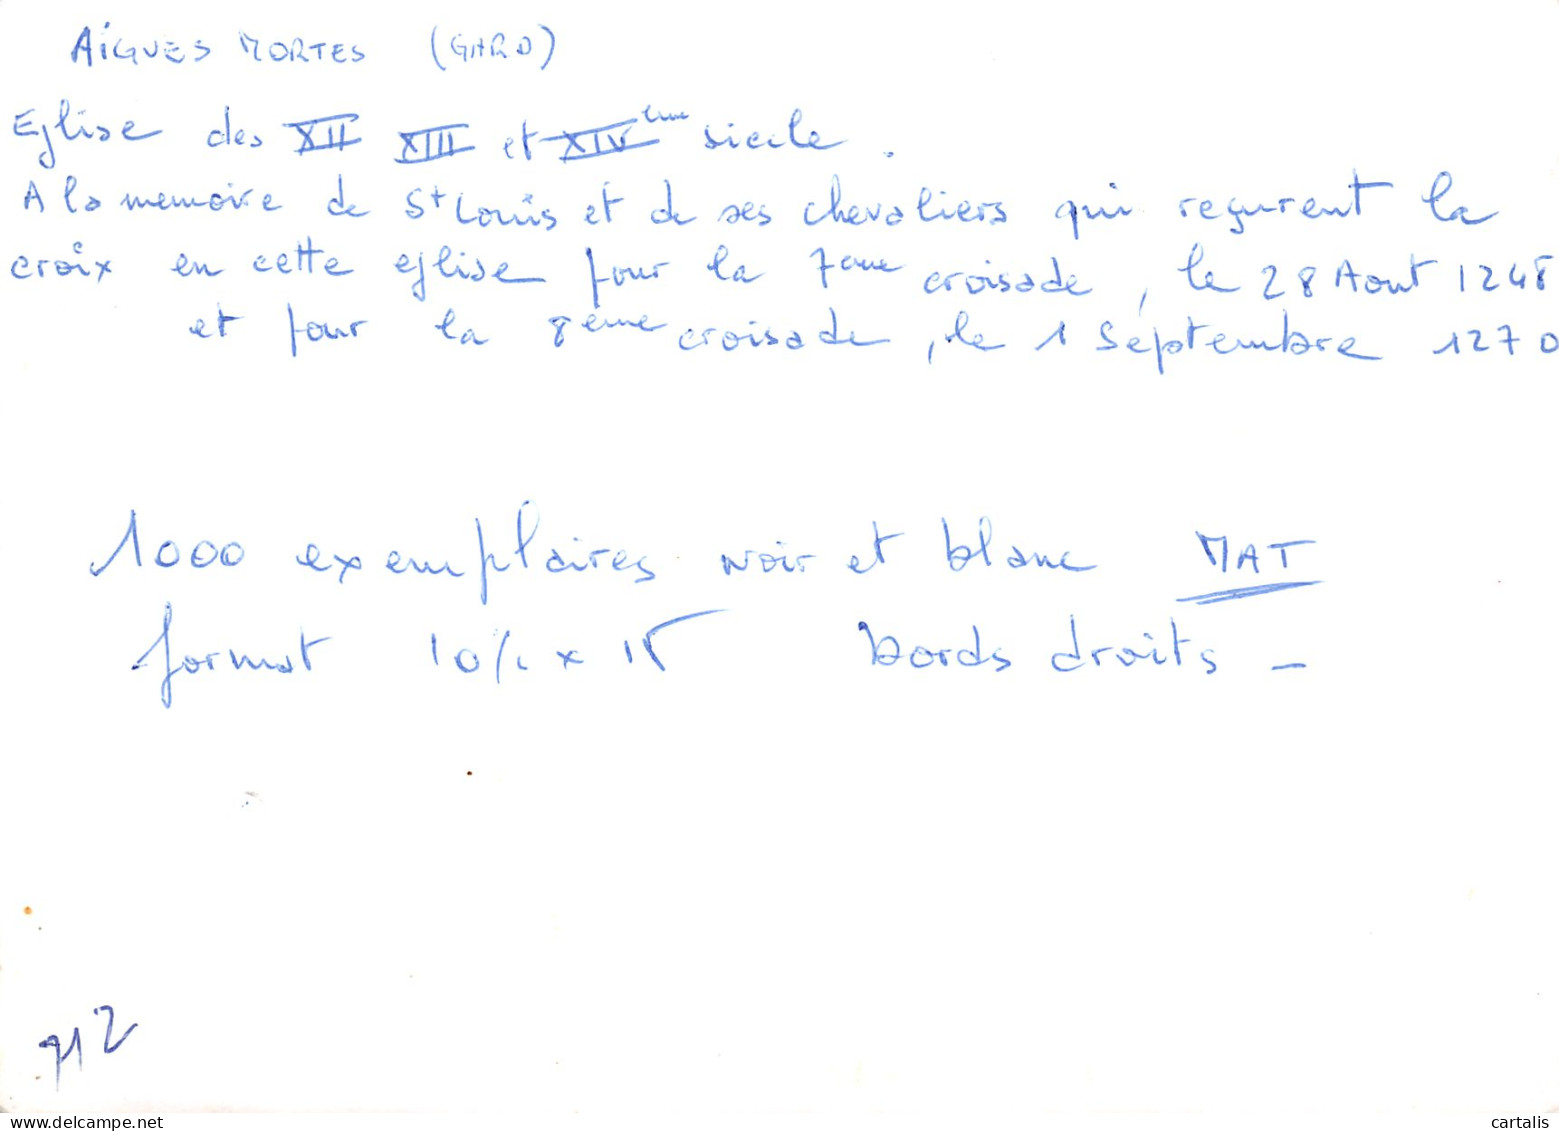 AIGUES MORTES (GARD)
Eglise des XII XIII et XIV ème siecle.
A la memoire de St Louis et de ses chevaliers qui reçurent la
croix en cette eglise pour la 7eme croisade, le 28 Aout 1248
et pour la 8ème croisade, le 1 Septembre 1270
1000 exemplaires noir et blanc MAT
format 10 x 15 bords droits -
712
www.delcampe.net
cartalis